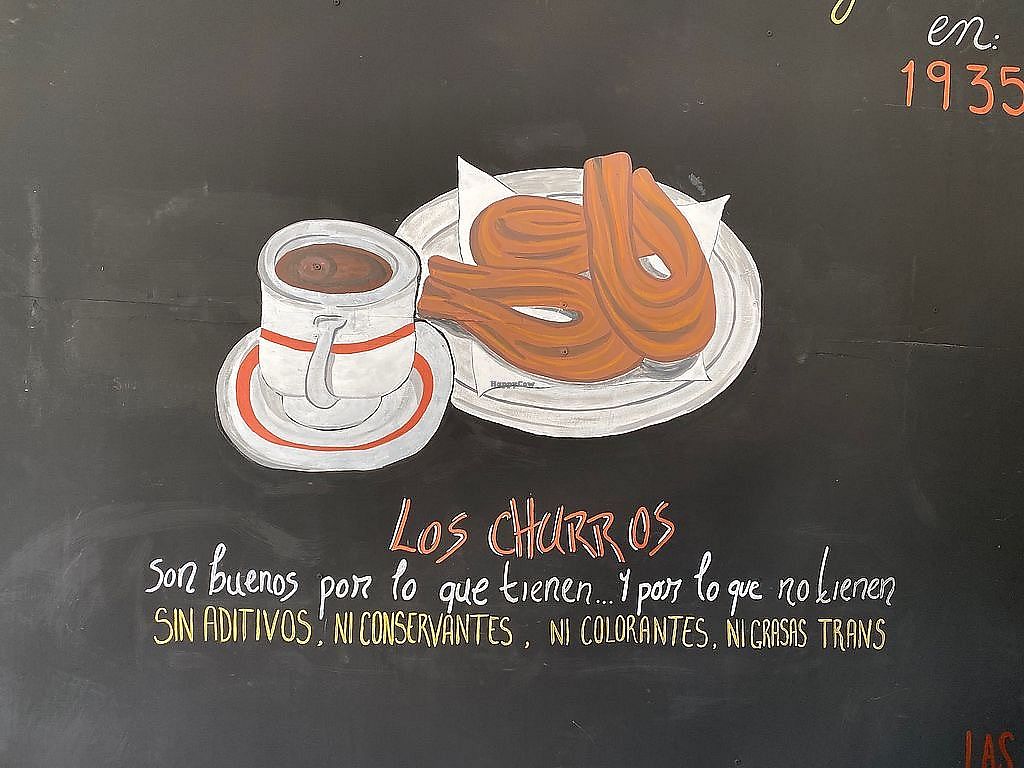 en:
1935
HappyCow
LOS CHURROS
son buenos por lo que tienen... y por lo que no tienen
SIN ADITIVOS, NI CONSERVANTES, NI COLORANTES, NI GRASAS TRANS
LAS